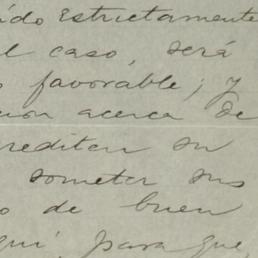 ido Estrictamente
el caso, será
o favorable; y
cion acerca de
crediten su
someter sus
o de buen
quí, para que,